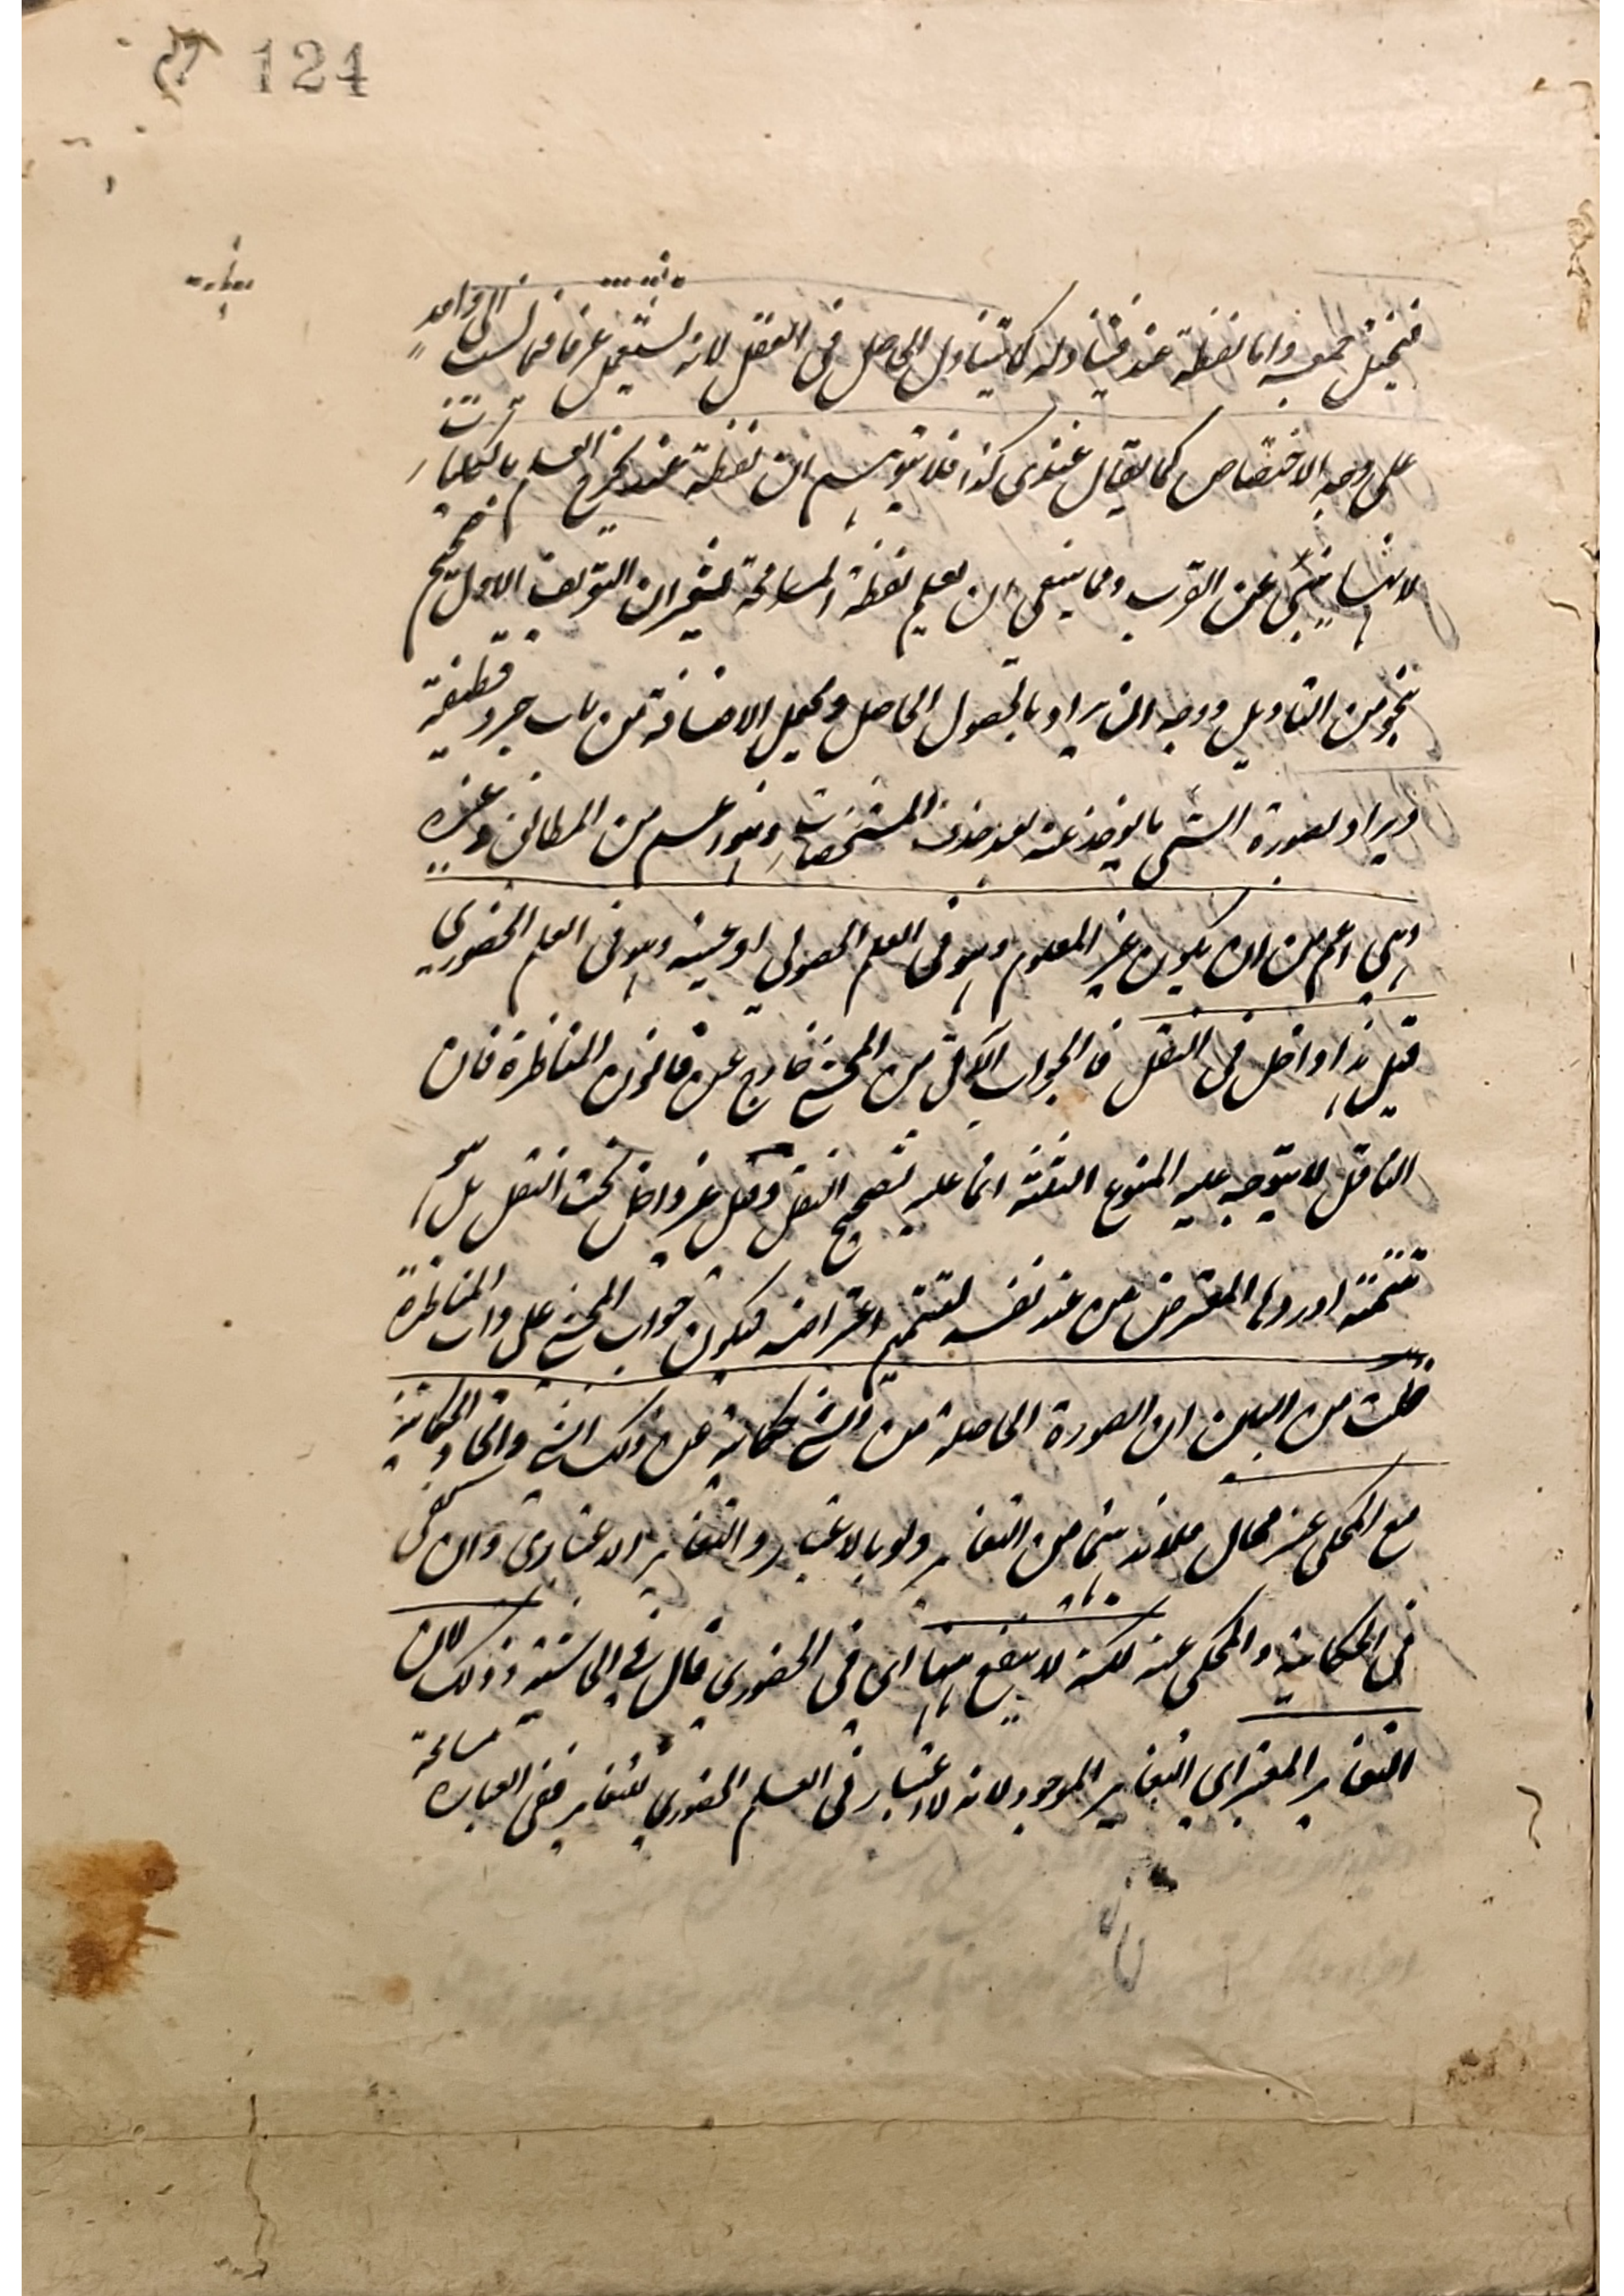 124
فيختل جمعه واما لفظة عند فيتناوله كما تناول الحاصل فى العقل لانه يستعمل عرفا فيما نسب الى واحد
على وجه الاختصاص كما يقال عندى كذا فلا يتوهم ان لفظة عند يخرج العلم بالكليات
لانها ينبئ عن القرب ومما ينبغى ان يعلم لفظة المسامحة يشعر ان التعريف الاول صحيح
بنحو من التاويل ووجه ان يراد بالحصول الحاصل ويجعل الاضافة من باب جرد قطيفة
ويراد بصورة الشى ما يؤخذ عنه بعد حذف المشخصات وهو اعم من المطابق وغيره
وهى اعم من ان يكون غير المعلوم وهو فى العلم الحصولى او عينه وهو فى العلم الحضورى
قيل هذا داخل فى النقل فالجواب الآتى من المحشى خارج عن قانون المناظرة فان
الناقل لا يتوجه عليه المنوع الثلثة انما عليه تصحيح النقل وقيل غير داخل تحت النقل بل هو
تتمة اوردها المعترض من عند نفسه لتتميم اعتراضه فيكون جواب المحشى على داب المناظرة
قلت من البين ان الصورة الحاصلة من الشئ حكاية عن ذلك الشئ واتحاد الحكاية
مع المحكى عنه محال فلابد بينهما من التغاير ولو بالاعتبار والتغاير الاعتبارى وان كفى
فى الحكاية والمحكى عنه لكنه لا ينفع ههنا اى فى الحضورى قال فى الحاشية وذلك لان
التغاير المعتبر اى التغاير الموجود لانه لا اعتبار فى العلم الحضورى للتغاير ففى العبارة مسامحة